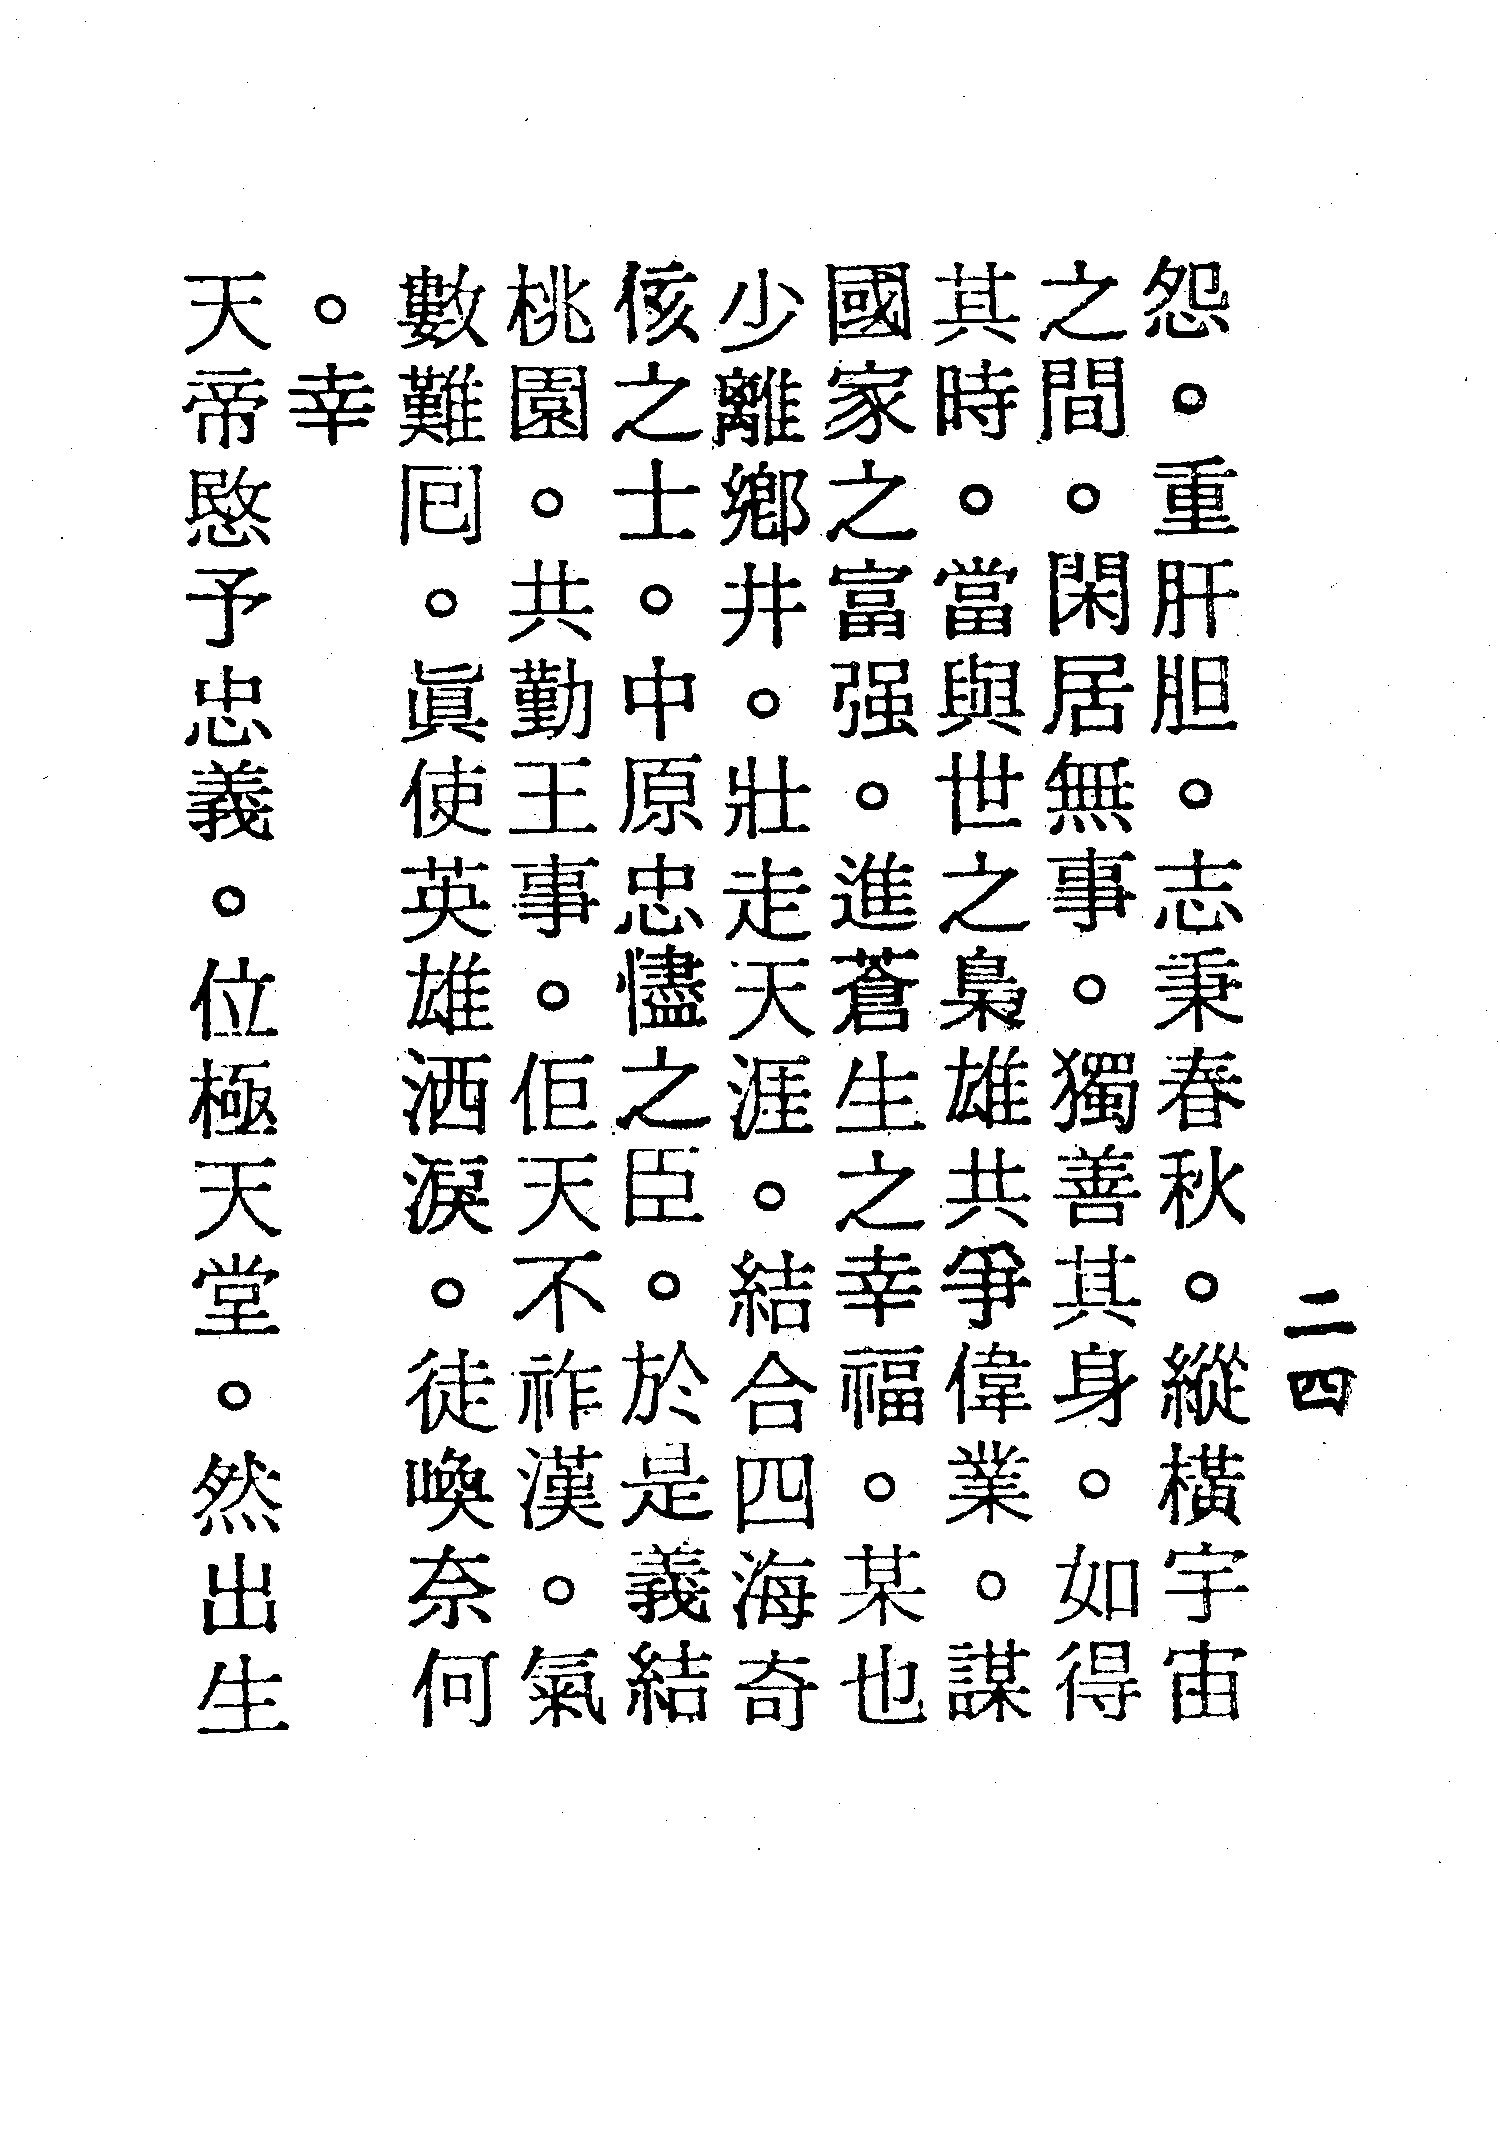 二四
怨。重肝胆。志秉春秋。縱橫宇宙
之間。閑居無事。獨善其身。如得
其時。當與世之梟雄共爭偉業。謀
國家之富强。進蒼生之幸福。某也
少離鄉井。壯走天涯。結合四海奇
侅之士。中原忠儘之臣。於是義結
桃園。共勤王事。佢天不祚漢。氣
數難囘。眞使英雄洒淚。徒喚奈何
。幸
天帝愍予忠義。位極天堂。然出生